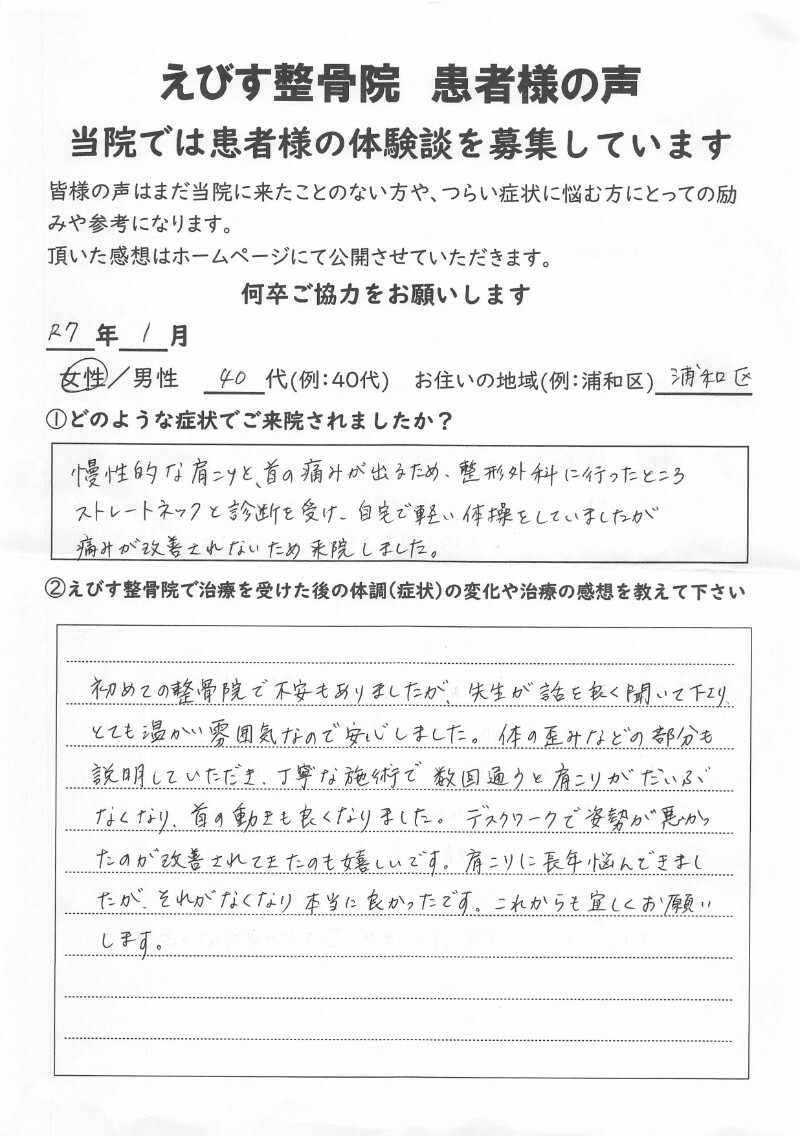 えびす整骨院 患者様の声
当院では患者様の体験談を募集しています
皆様の声はまだ当院に来たことのない方や、つらい症状に悩む方にとっての励
みや参考になります。
頂いた感想はホームページにて公開させていただきます。
何卒ご協力をお願いします
R7年1月
女性/男性 40代(例:40代) お住いの地域(例:浦和区) 浦和区
①どのような症状でご来院されましたか?
慢性的な肩こりと、首の痛みが出るため、整形外科に行ったところ
ストレートネックと診断を受け、自宅で軽い体操をしていましたが
痛みが改善されないため来院しました。
②えびす整骨院で治療を受けた後の体調(症状)の変化や治療の感想を教えて下さい
初めての整骨院で不安もありましたが、先生が話を良く聞いて下さり、
とても温かい雰囲気なので安心しました。体の歪みなどの部分も
説明していただき、丁寧な施術で数回通うと肩こりがだいぶ
なくなり、首の動きも良くなりました。デスクワークで姿勢が悪かっ
たのが改善されてきたのも嬉しいです。肩こりに長年悩んできまし
たが、それがなくなり本当に良かったです。これからも宜しくお願い
します。